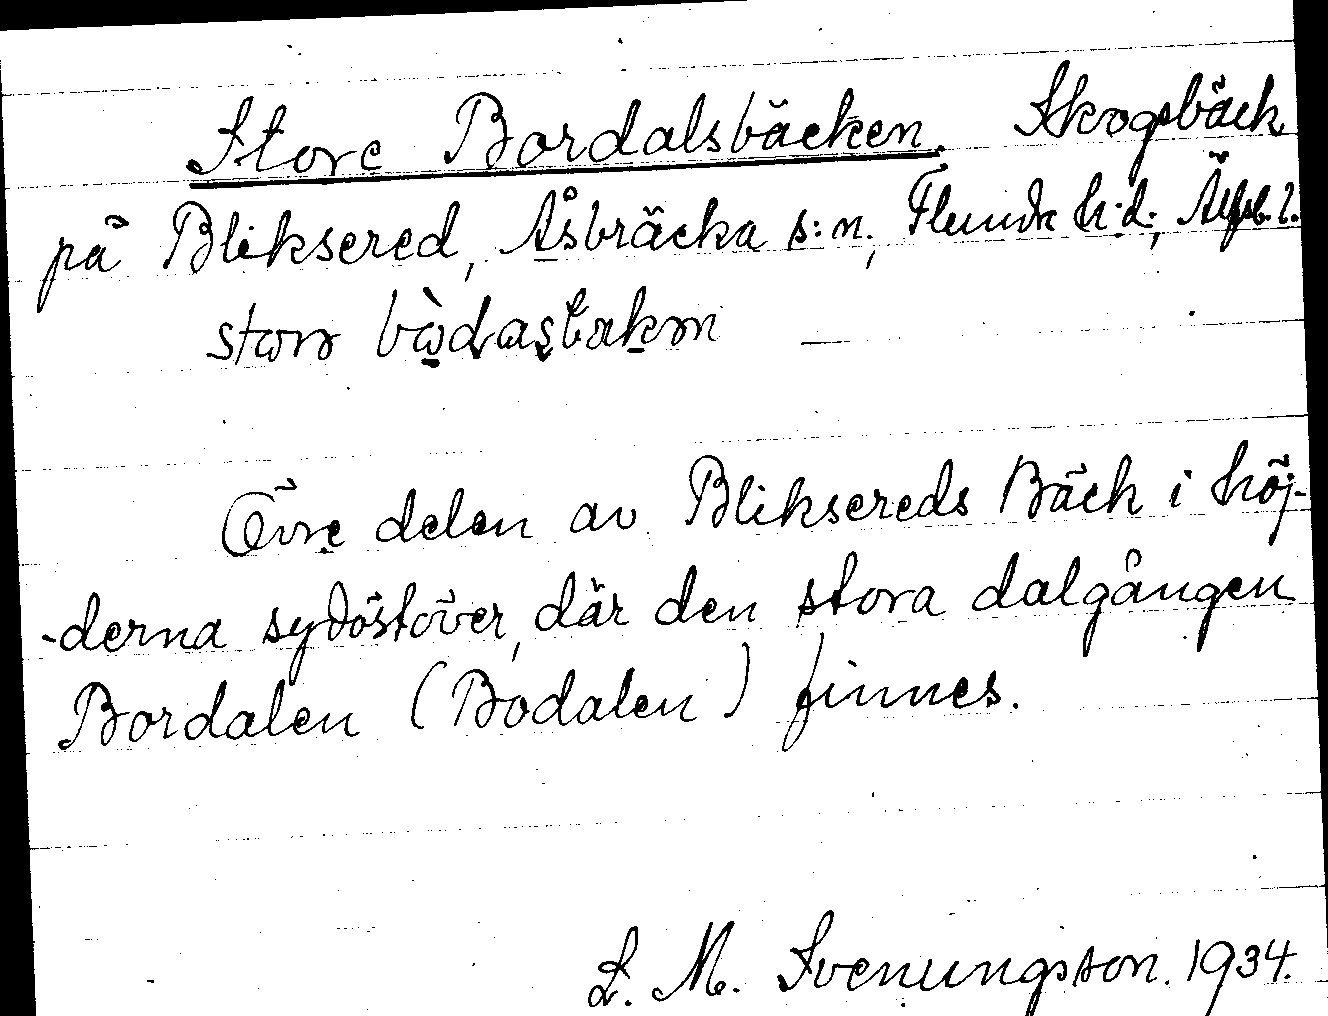 Store Bordalsbäcken. Skogsbäck
på Bliksered, Åsbräcka s:n, Flundr h:d, Älfsb. l.
Övre delen av Bliksereds Bäck i höj-
-derna sydöstöver, där den stora dalgången
Bordalen (Bodalen) finnes.
L. M. Svenungsson. 1934.